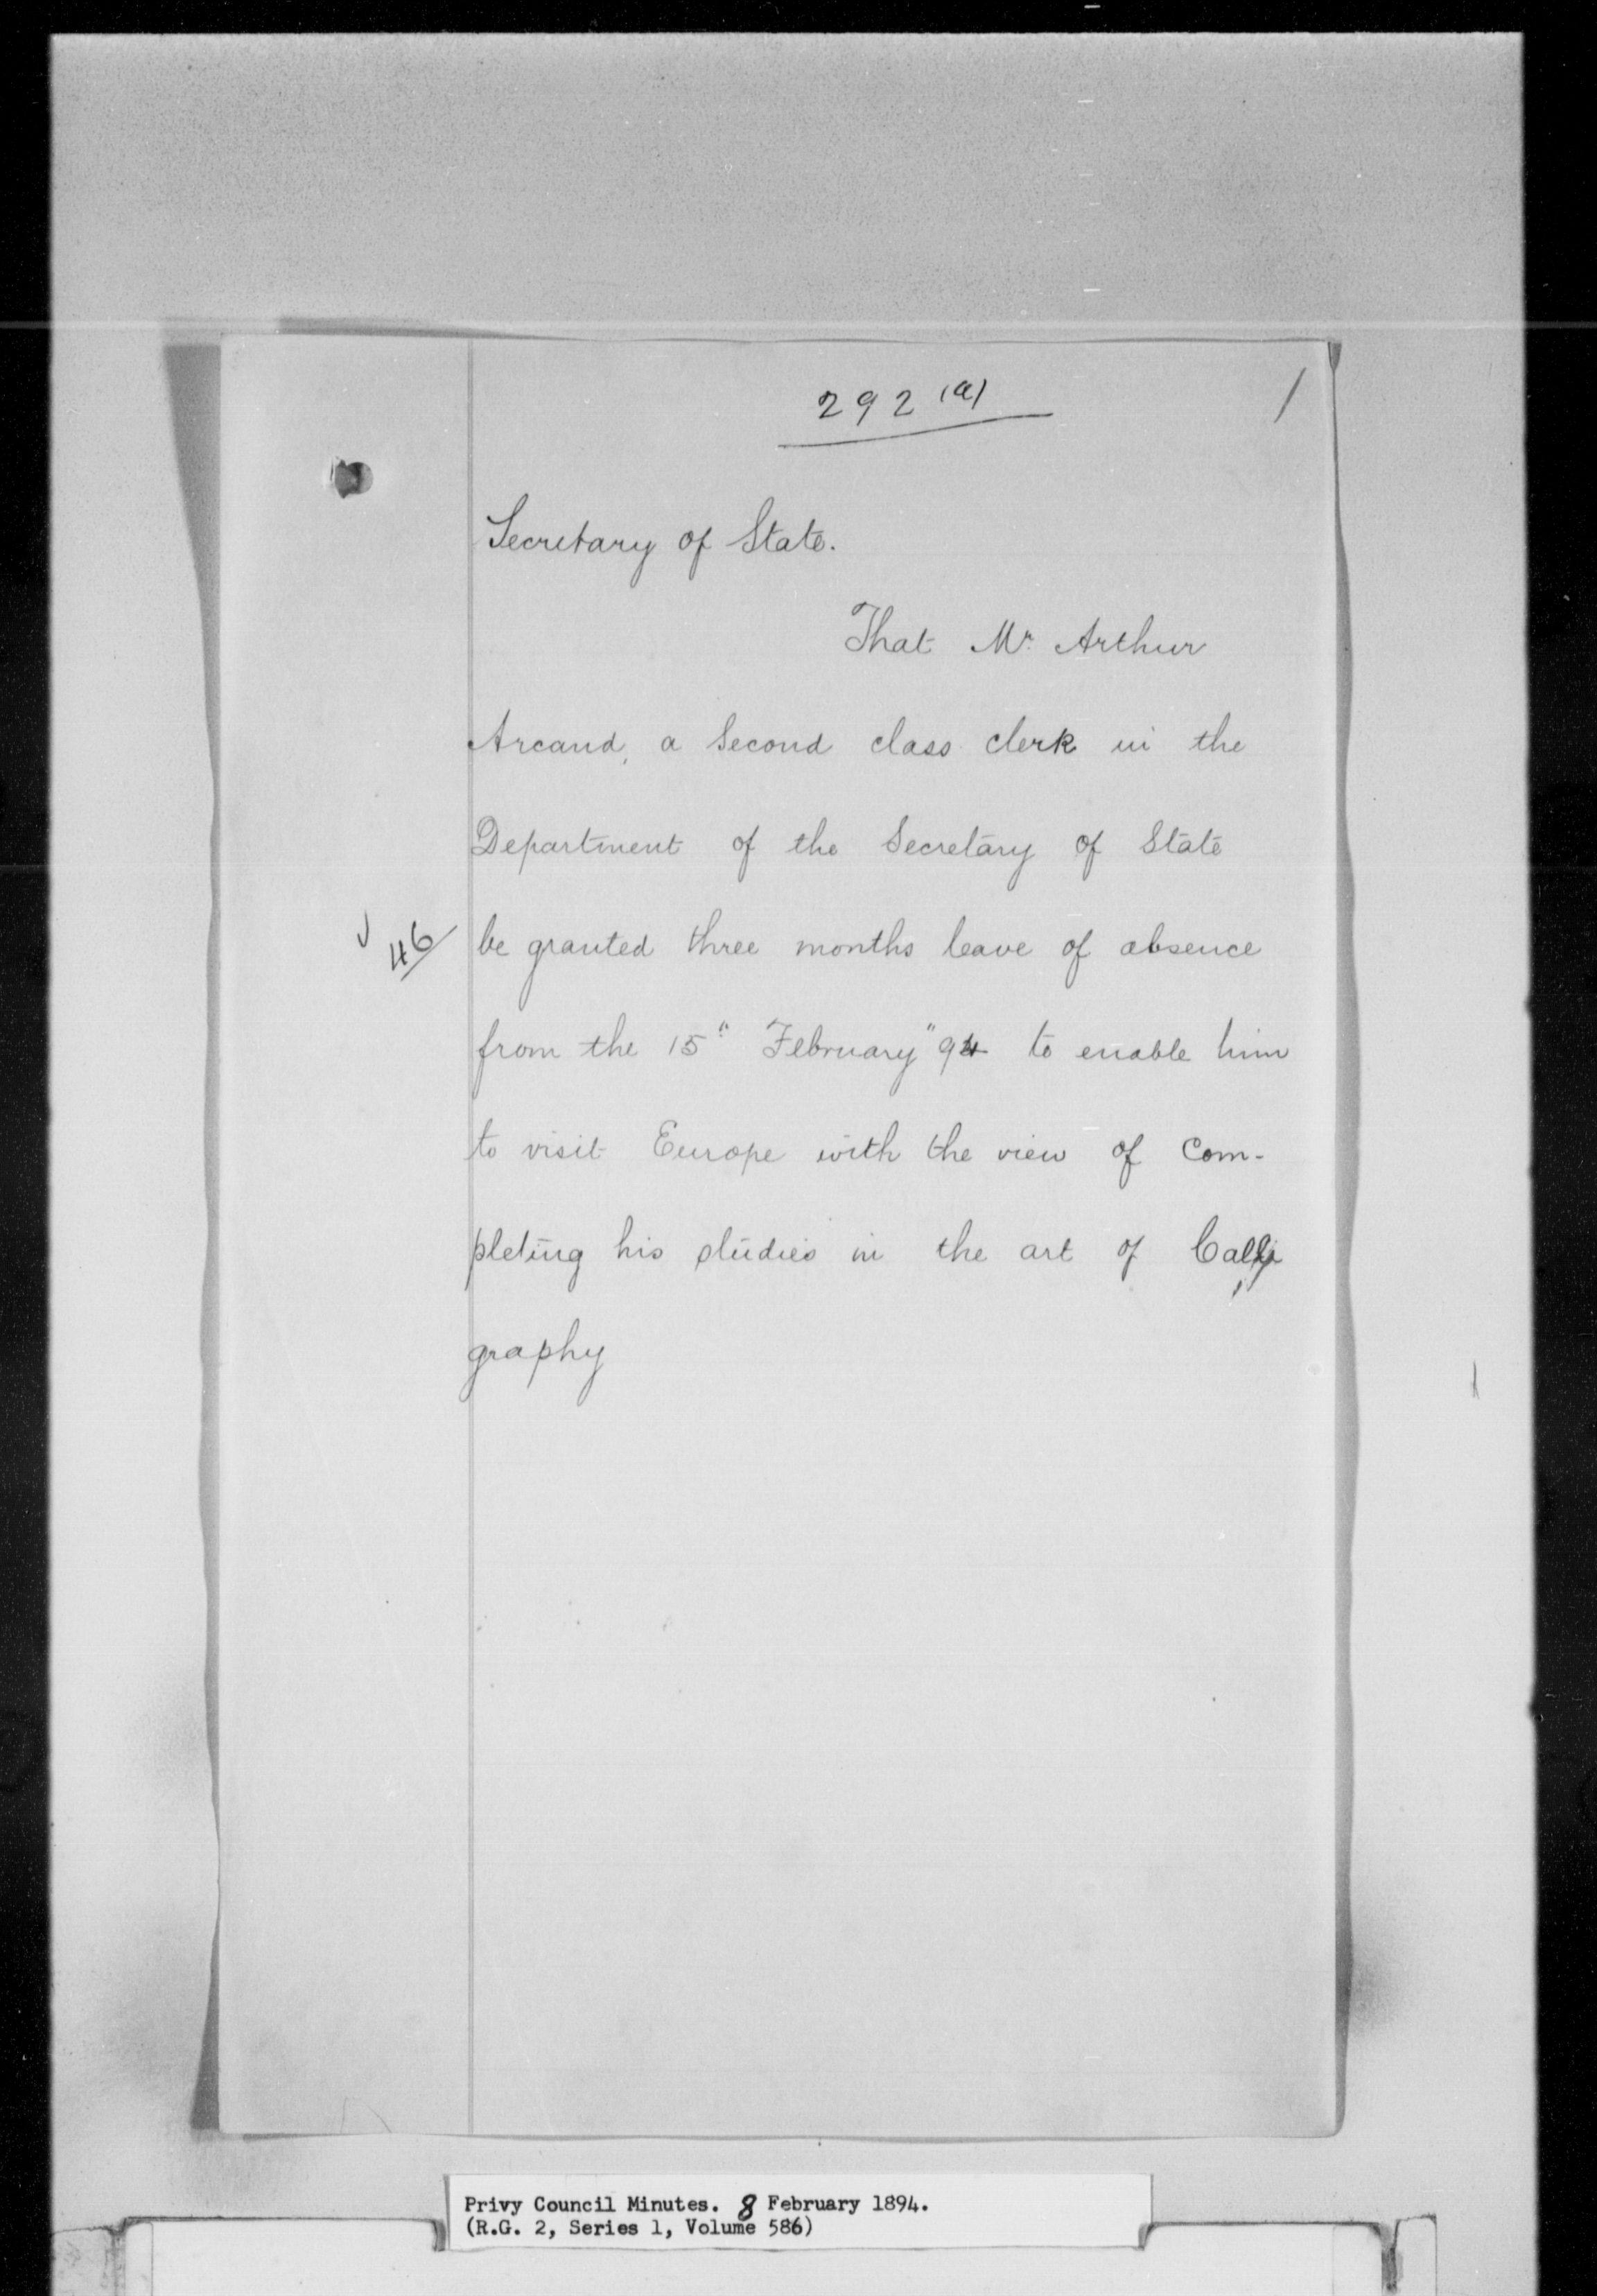 292 (a)
/
Secretary of State.
That Mr. Arthur
Arcand, a Second class clerk in the
Department of the Secretary of State
√ 46 be granted three months leave of absence
from the 15" February "94 to enable him
to visit Europe with the view of Com-
pleting his studies in the art of Calli
graphy
Privy Council Minutes. 8 February 1894.
(R.G. 2, Series 1, Volume 586)